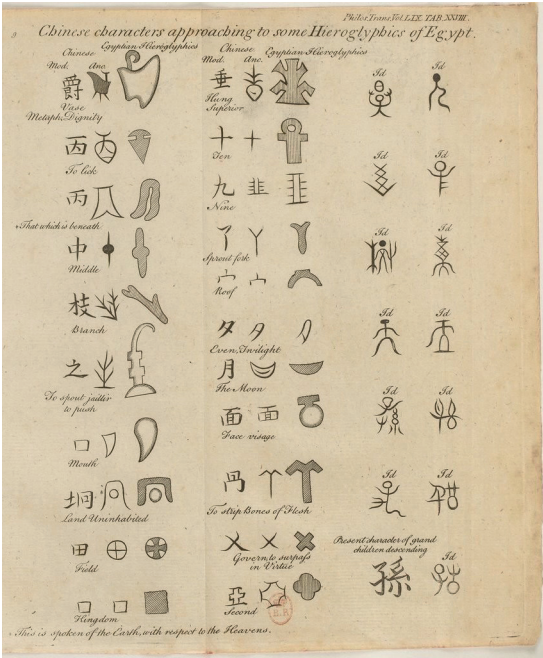 Philos. Trans. Vol. LIX. TAB. XXVIII.
Chinese characters approaching to some Hieroglyphics of Egypt.
Chinese Egyptian Hieroglyphics
Mod. Anc.
爵
Vase
Metaph. Dignity
To lick
丙
That which is beneath
中
Middle
枝
Branch
之
To spout jaillir
to push
口
Mouth
坰
Land Uninhabited
田
Field
Kingdom
This is spoken of the Earth, with respect to the Heavens.
Chinese Egyptian Hieroglyphics
Mod. Anc.
垂
Hung
Superior
十
Ten
九
Nine
丫
Sprout fork
宀
Roof
夕
Even, Twilight
月
The Moon
面
Face visage
To strip Bones of Flesh
乂
Govern, to surpass
in Virtue
亞
Second
Id Id
Id Id
Id Id
Id Id
Id Id
Id Id
Present character of grand
children descending
Id
孫